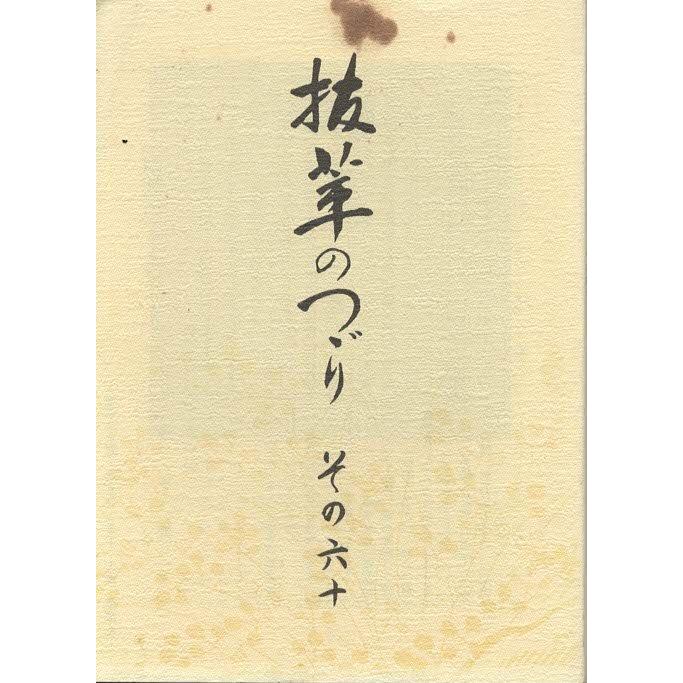 抜萃のつゞり その六十